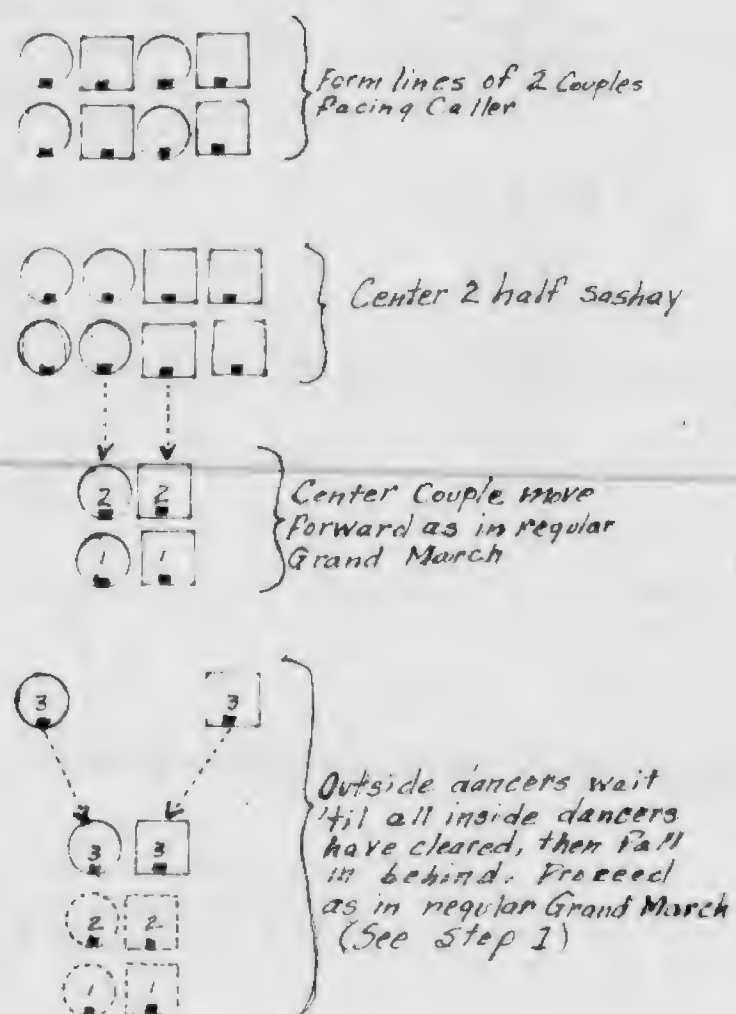 Form lines of 2 Couples
facing Caller
Center 2 half sashay
2 2
1 1
Center Couple move
forward as in regular
Grand March
3 3
3 3
2 2
1 1
Outside dancers wait
'til all inside dancers
have cleared, then fall
in behind. Proceed
as in regular Grand March
(See Step 1)